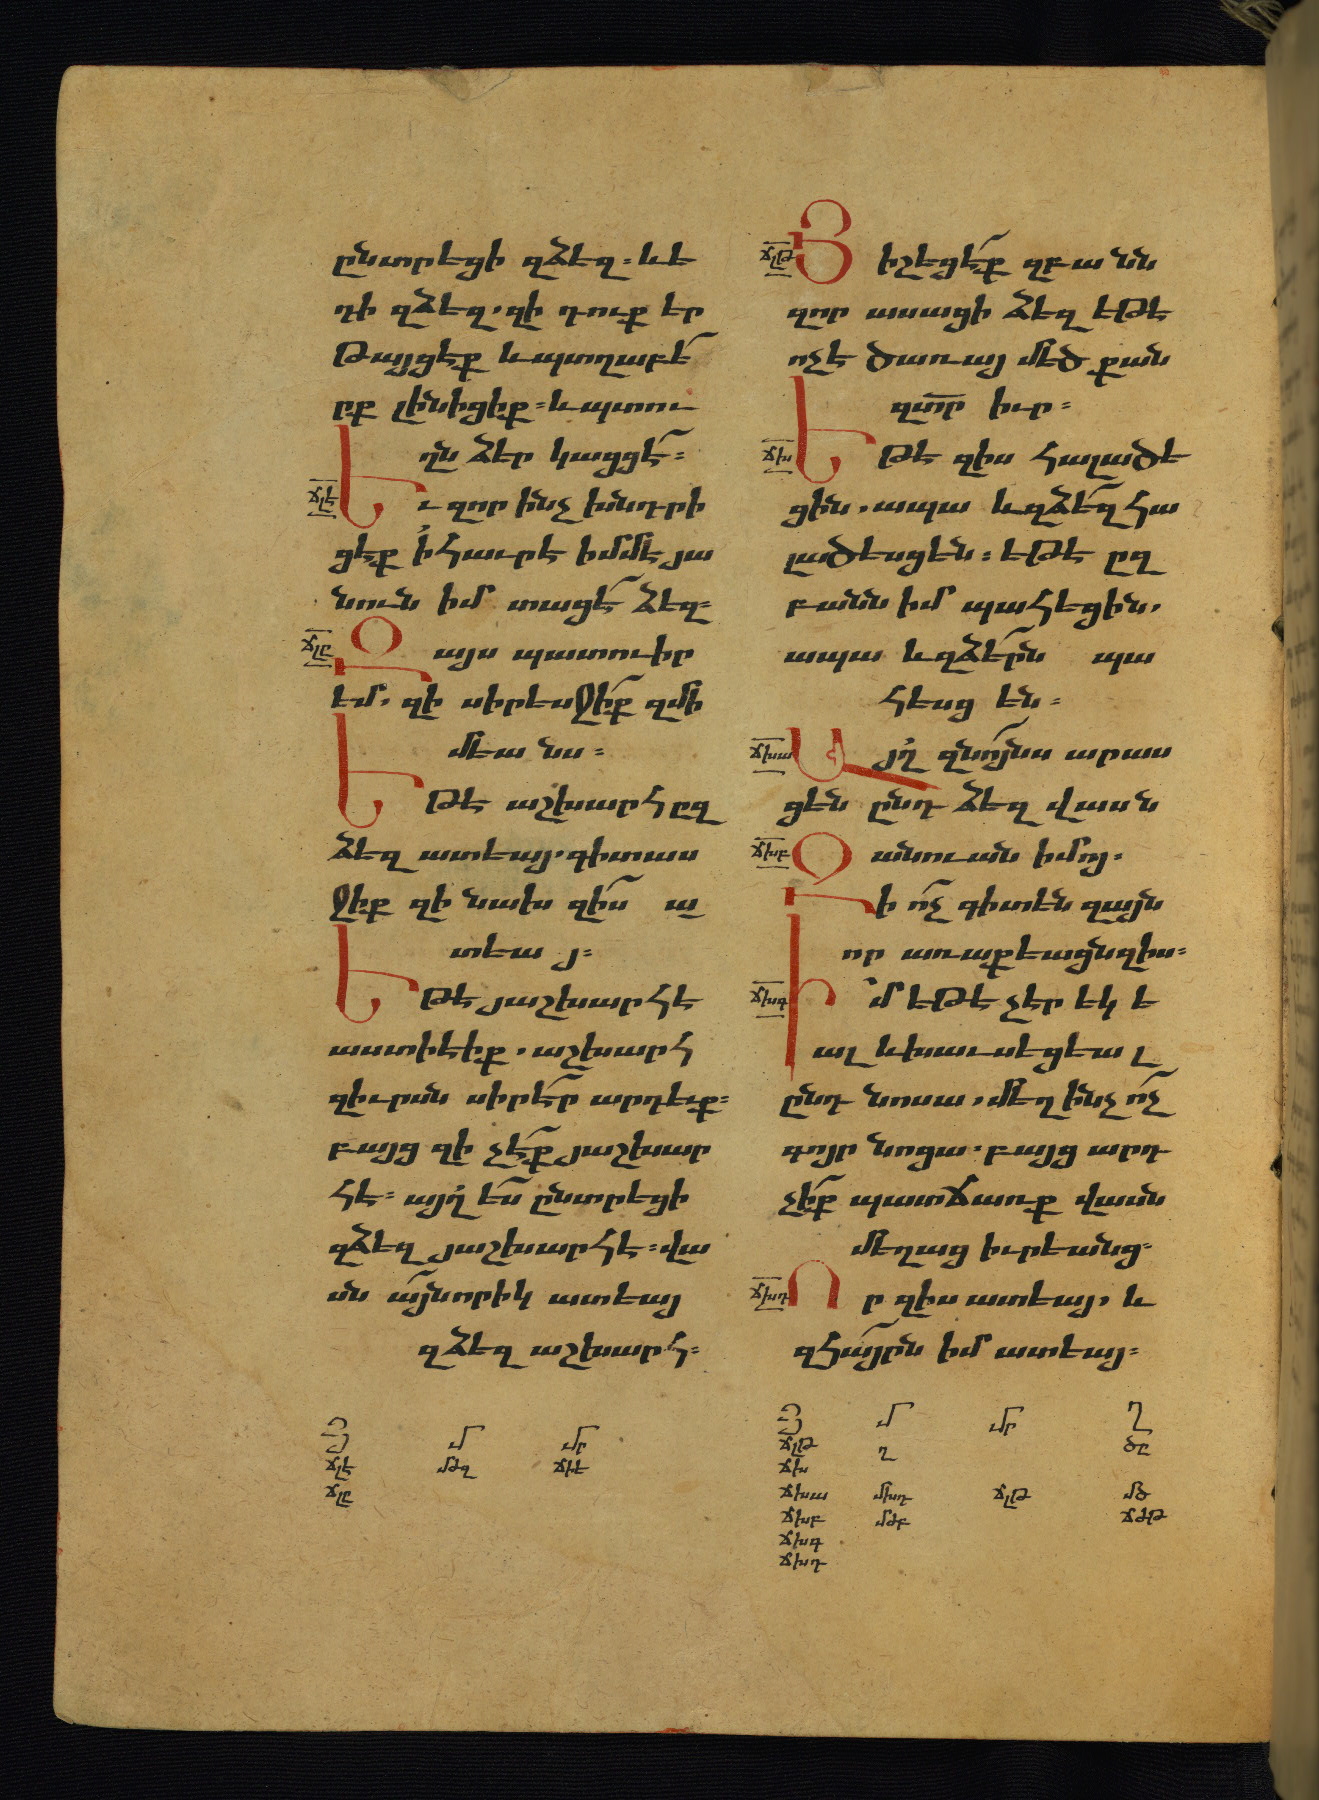 ընտրեցի զձեզ։ և ե
դի զձեզ, զի դուք եր
թայցէք և պտղաբե՛
րք լինիցիք։ և պտու
ղն ձեր կացցէ՛։
ճլէ Ե ւ զոր ինչ խնդրի
ցէք ի հաւրէ իմմէ յա
նուն իմ տացէ՛ ձեզ։
ճլը Զ այս պատուիր
եմ, զի սիրեսջի՛ք զմի
մեանս։
Ե թէ աշխարհ ըզ
ձեզ ատեայ, գիտաս
ջիք զի նախ զի՛ս ա
տեաց։
Ե թէ յաշխարհէ
աստի էիք, աշխարհ
զիւրսն սիրէ՛ր արդեւք։
բայց զի չէ՛ք յաշխար
հէ։ այղ ե՛ս ընտրեցի
զձեզ յաշխարհէ։ վա
սն ա՛յնորիկ ատեայ
զձեզ աշխարհ։
ճլթ Յ իշեցէ՛ք զբանն
զոր ասացի ձեզ եթէ
ոչ է ծառայ մեծ քան
զտր իւր։
ճխ Ե թէ զիս հալածե
ցին, ապա և զձե՛զ հա
լածեսցեն։ եթէ ըզ
բանն իմ պահեցին,
ապա և զձե՛րն պա
հեսցեն։
ճխա Ա յղ զնո՛յնս արաս
ցեն ընդ ձեզ վասն
ճխբ անուան իմոյ։
Զ ի ո՛չ գիտեն զայն
որ առաքեացն զիս։
ճխգ Ի մ եթէ չէր եկե
ալ և խաւսեցեալ
ընդ նոսա, մեղ ինչ ո՛չ
գոյր նոցա. բայց արդ
չի՛ք պատճառք վասն
մեղաց իւրեանց։
ճխդ Ո ր զիս ատեայ, և
զհա՛յրն իմ ատեայ։
Յ մ մր
ճլէ մթզ ճիե
ճլը
Յ մ մր ղ
ճլթ ղ ծը
ճխ
ճխա մխդ ճլթ մծ
ճխբ մթբ ճձթ
ճխգ
ճխդ